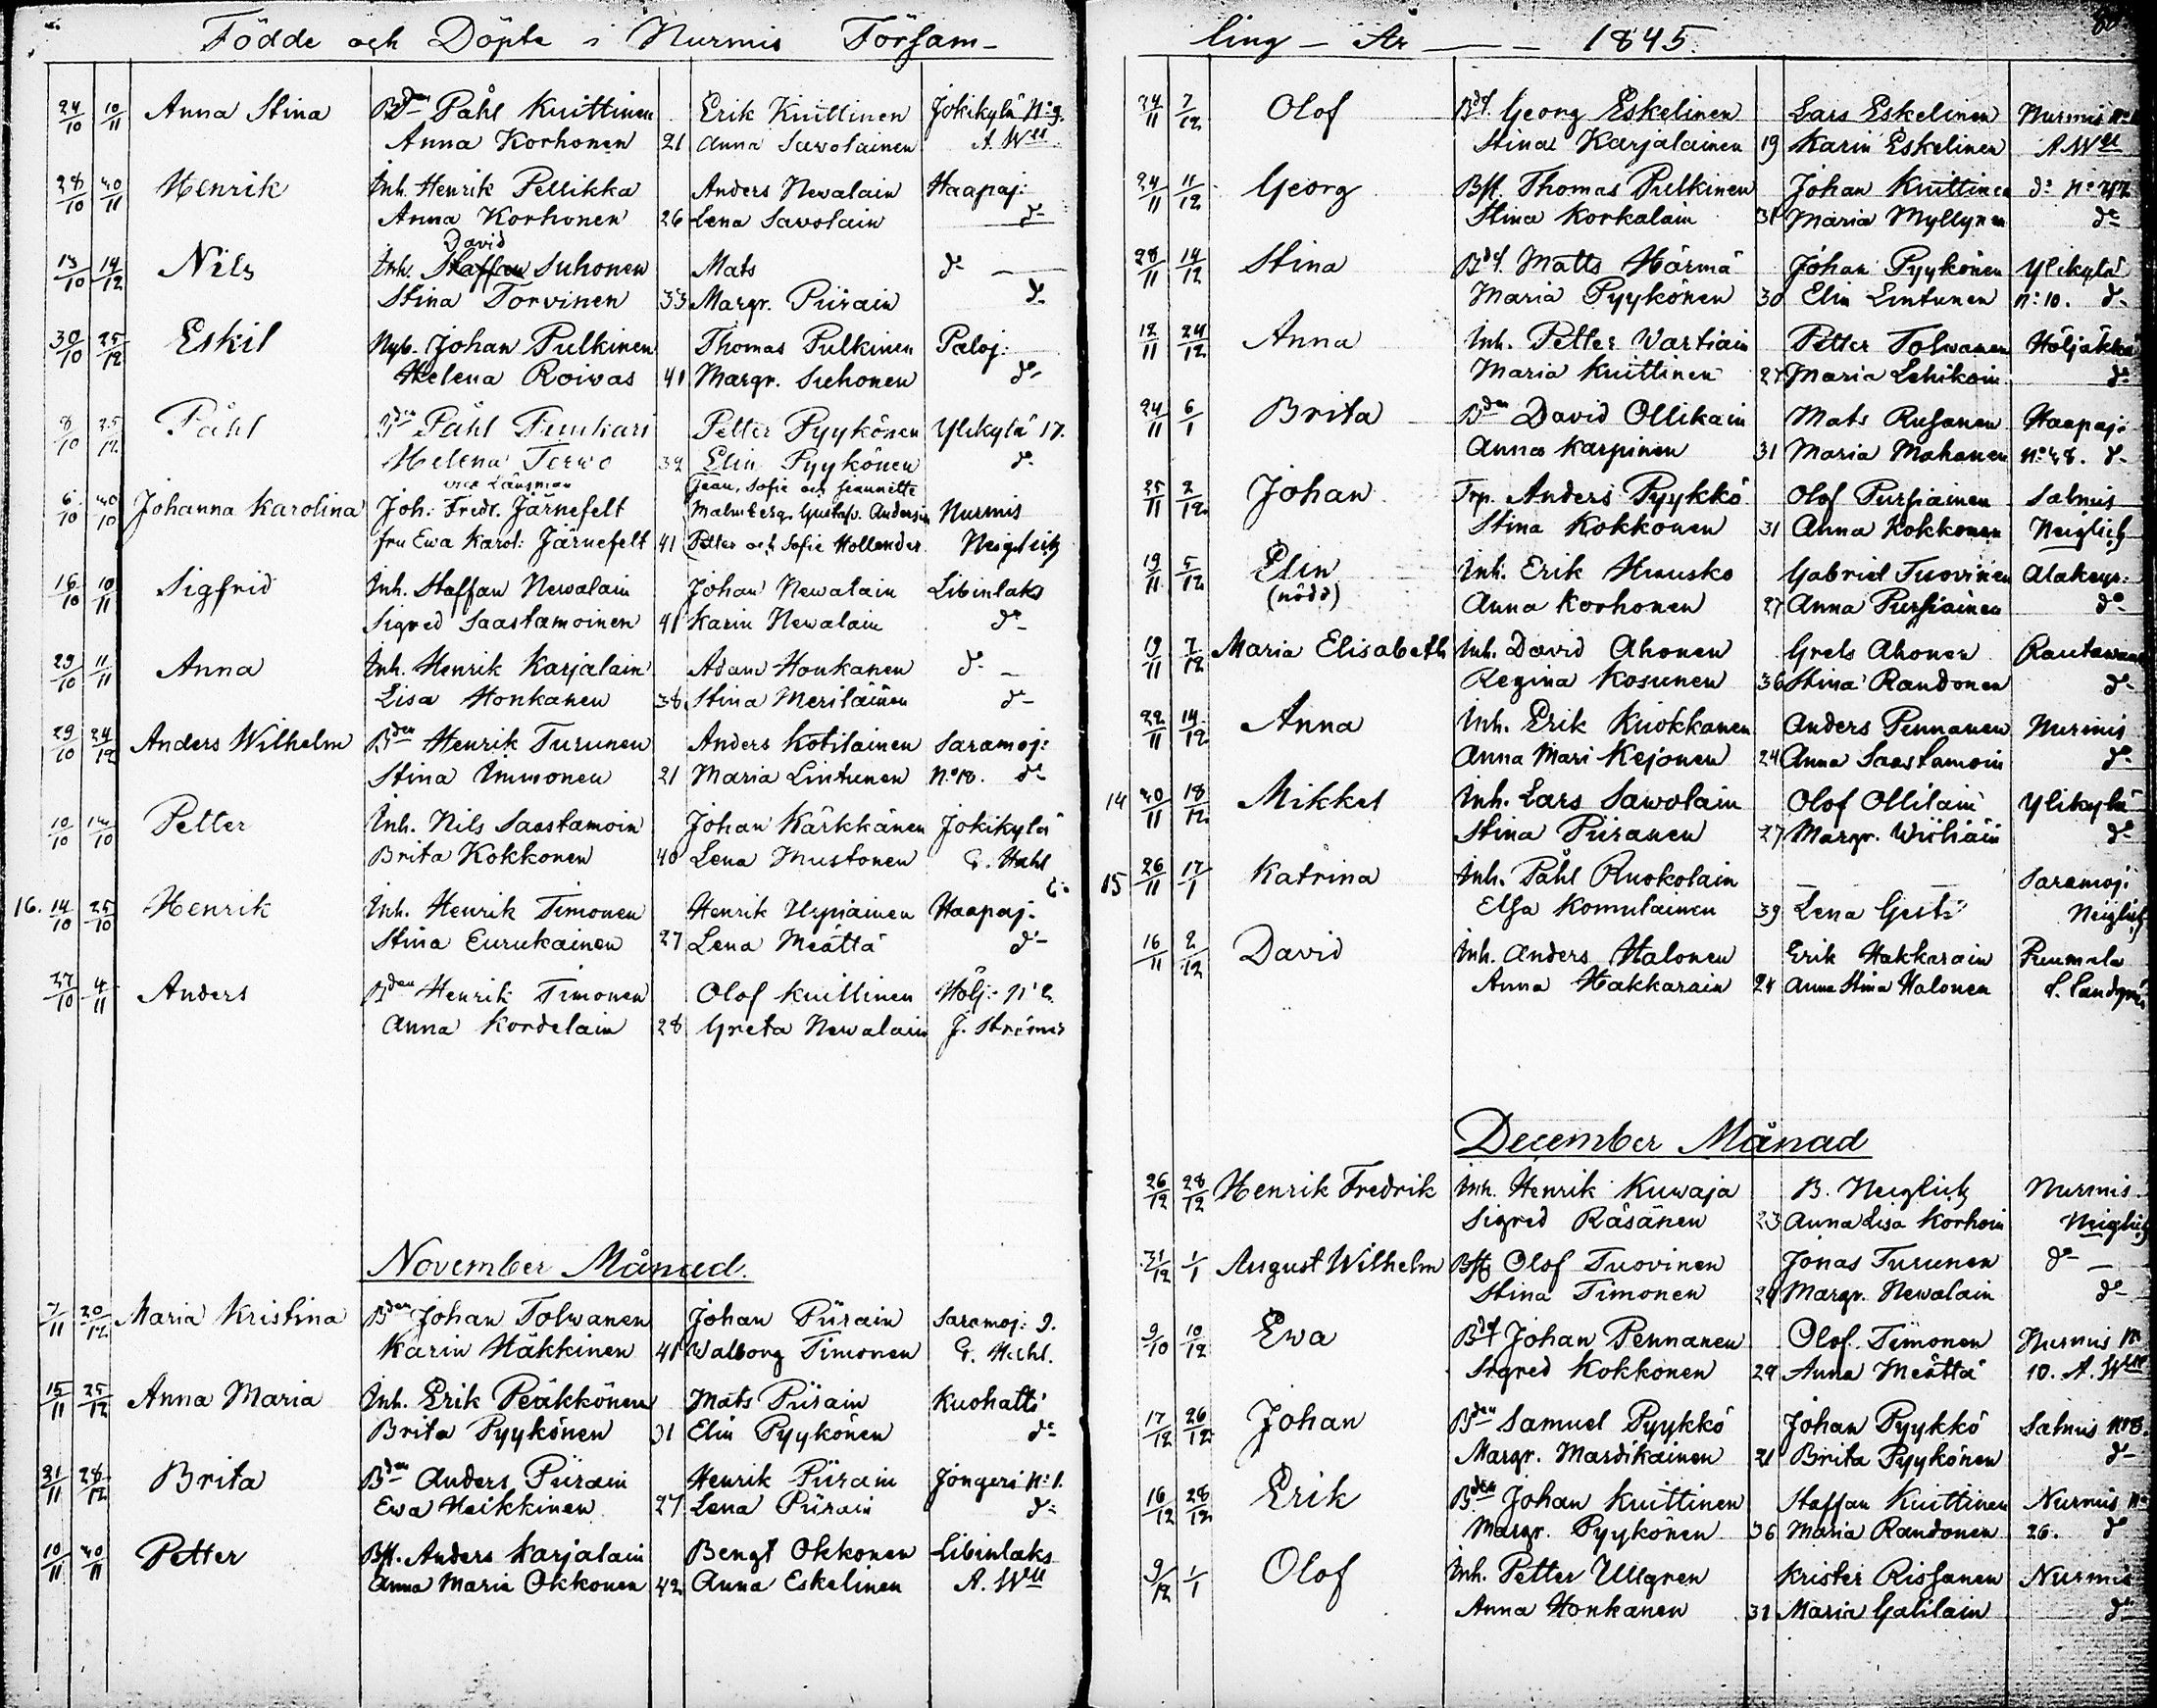 Födde och Döpte i Nurmis Församling – År – 1845.
24/10 10/11 Anna Stina Bden Påhl Kuittinen Erik Kuittinen Jokikylä No 9.
Anna Korhonen 21 Anna Sawolainen A. Wll
28/10 30/11 Henrik Inh. Henrik Pellikka Anders Newalain Haapaj:
Anna Korhonen 26 Lena Savolain do
David
13/10 14/12 Nils Inh. Staffan Suhonen Mats do
Stina Torvinen 33 Margr. Piirain do
30/10 25/12 Eskil Nyb. Johan Pulkinen Thomas Pulkinen Paloj:
Helena Roiwas 41 Margr. Suhonen do
8/10 25/12 Påhl Bden Påhl Petter Pyykönen Ylikylä 17.
Helena Terwo 32 Elin Pyykönen do
vice Länsman Jean, Sofie och Jeannette
6/10 Johanna Karolina Joh: Fredr. Järnefelt Malmberg, Gustaf. Andersin Nurmis
fru Ewa Karol: Järnefelt 41 Petter och Sofie Hollender Neiglich
16/10 10/11 Sigfrid Inh. Staffan Newalain Johan Newalain Libinlaks
Sigred Saastamoinen 41 Karin Newalain do
29/10 11/11 Anna Inh. Henrik Karjalain Adam Honkanen do
Lisa Honkanen 38 Stina Meriläinen do
29/10 24/12 Anders Wilhelm Bden Henrik Turunen Anders Kotilainen Saramoj:
Stina Immonen 21 Maria Lintunen No 18. do
10/10 /10 Petter Inh. Nils Saastamoin Johan Kärkkänen Jokikylä
Brita Kokkonen 40 Lena Mustonen G. Hahl
16. 14/10 25/10 Henrik Inh. Henrik Timonen Henrik Urpiainen Haapaj.
Stina Eurukainen 27 Lena Meättä do
27/10 4/11 Anders Bden Henrik Timonen Olof Kuittinen Hölj: No 2.
Anna Kordelain 28 Greta Newalain J. Strömer
November Månad.
7/11 20/12 Maria Kristina Bden Johan Tolwanen Johan Piirain Saramoj: 9.
Karin Häkkinen 41 Walborg Timonen G. Hahl.
15/11 25/12 Anna Maria Inh. Erik Peäkkönen Mats Piirain Kuohatti
Brita Pyykönen 31 Elin Pyykönen do
21/11 28/12 Brita Bden Anders Piirain Henrik Piirain Jongeri No 1.
Ewa Heikkinen 27 Lena Piirain do
10/11 30/11 Petter Bff. Anders Karjalain Bengt Okkonen Libinlaks
Anna Maria Okkonen 42 Anna Eskelinen A. Wll
24/11 7/12 Olof Bdf. Georg Eskelinen Lars Eskelinen Nurmis No
Stina Karjalainen 19 Karin Eskelinen A Wll
24/11 11/12 Georg Bff. Thomas Pulkinen Johan Kuittinen do No 47
Stina Korkalain 31 Maria Myllynen do
28/11 14/12 Stina Bdf. Matts Härmä Johan Pyykönen Ylikylä
Maria Pyykönen 30 Elin Lintunen No: 10. do
12/11 24/12 Anna Inh. Petter Wartiain Petter Tolwanen Höljäkkä
Maria Kuittinen 27 Maria Lehikoin do
24/11 6/1 Brita Bden David Ollikain Mats Rusanen Haapaj.
Anna Karpinen 31 Maria Mahanen No 48. do
25/11 2/12 Johan Trp. Anders Pyykkö Olof Pursiainen Salmis
Stina Kokkonen 31 Anna Kokkonen Neiglich
19/11 5/12 Elin Inh. Erik Huusko Gabriel Tuovinen Alakeyr:
(nödd) Anna Korhonen 27 Anna Pursiainen do
19/11 7/12 Maria Elisabeth Inh. David Ahonen Grels Ahonen
Regina Kosunen 36 Stina Randonen do
22/11 14/12 Anna Inh. Erik Kuokkanen Anders Pennanen Nurmis
Anna Mari Kejonen 24 Anna Saastamoin do
14 30/11 18/12 Mikkel Inh. Lars Sawolain Olof Ollilain Ylikylä
Stina Piiranen 27 Margr. Wiiliäin do
15 26/11 17/1 Katrina Inh. Påhl Ruokolain Saramoj.
Elsa Komulainen 39 Lena Neiglich
16/11 2/12 David Inh. Anders Halonen Erik Hakkarain Puumala
Anna Hakkarain 24 Anna Stina Halonen
December Månad
26/12 28/12 Henrik Fredrik Inh. Henrik Kuwaja B. Neiglich Nurmis
Sigred Räsänen 23 Anna Lisa Korhoin Neiglich
31/12 1/1 August Wilhelm Bff. Olof Tuovinen Jonas Turunen do
Stina Timonen 29 Margr. Newalain do
9/10 10/12 Ewa Bdf Johan Pennanen Olof Timonen Nurmis No
Sigred Kokkonen 29 Anna Meättä 10. A. Wll
17/12 26/12 Johan Bden Samuel Pyykkö Johan Pyykkö Salmis No 8.
Margr. Mardikainen 21 Brita Pyykönen do
16/12 28/12 Erik Bden Johan Kuittinen Staffan Kuittinen Nurmis No
Margr. Pyykönen 36 Maria Randonen 26. do
9/12 1/1 Olof Inh. Petter Ullgren Krister Rissanen Nurmis
Anna Honkanen 31 Maria Galilain do